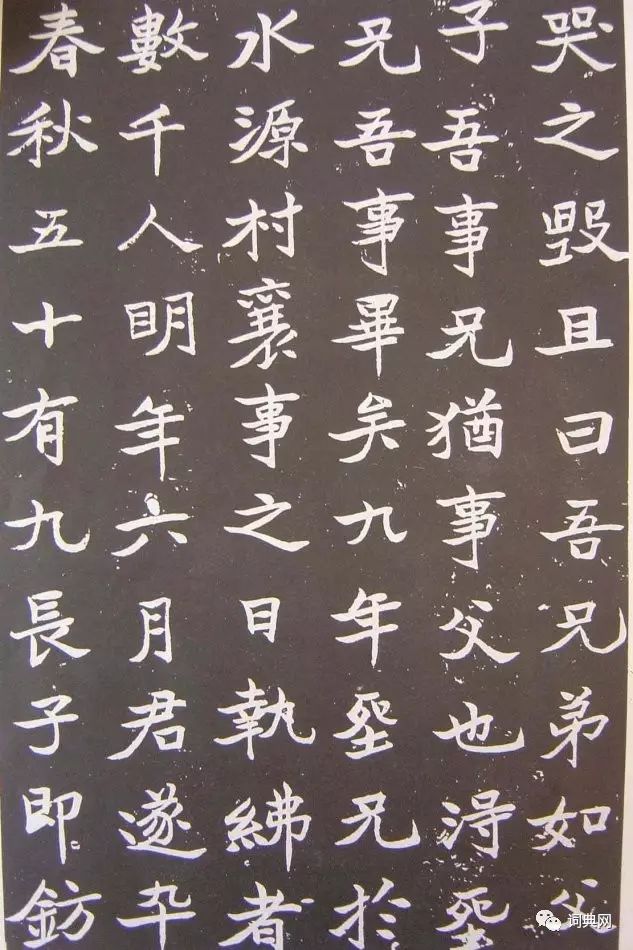 哭之毀且曰吾兄弟如父
子吾事兄猶事父也淂塟
兄吾事畢矣九年塟兄於
水源村襄事之日執紼者
數千人明年六月君遂卒
春秋五十有九長子即鈁
词典网